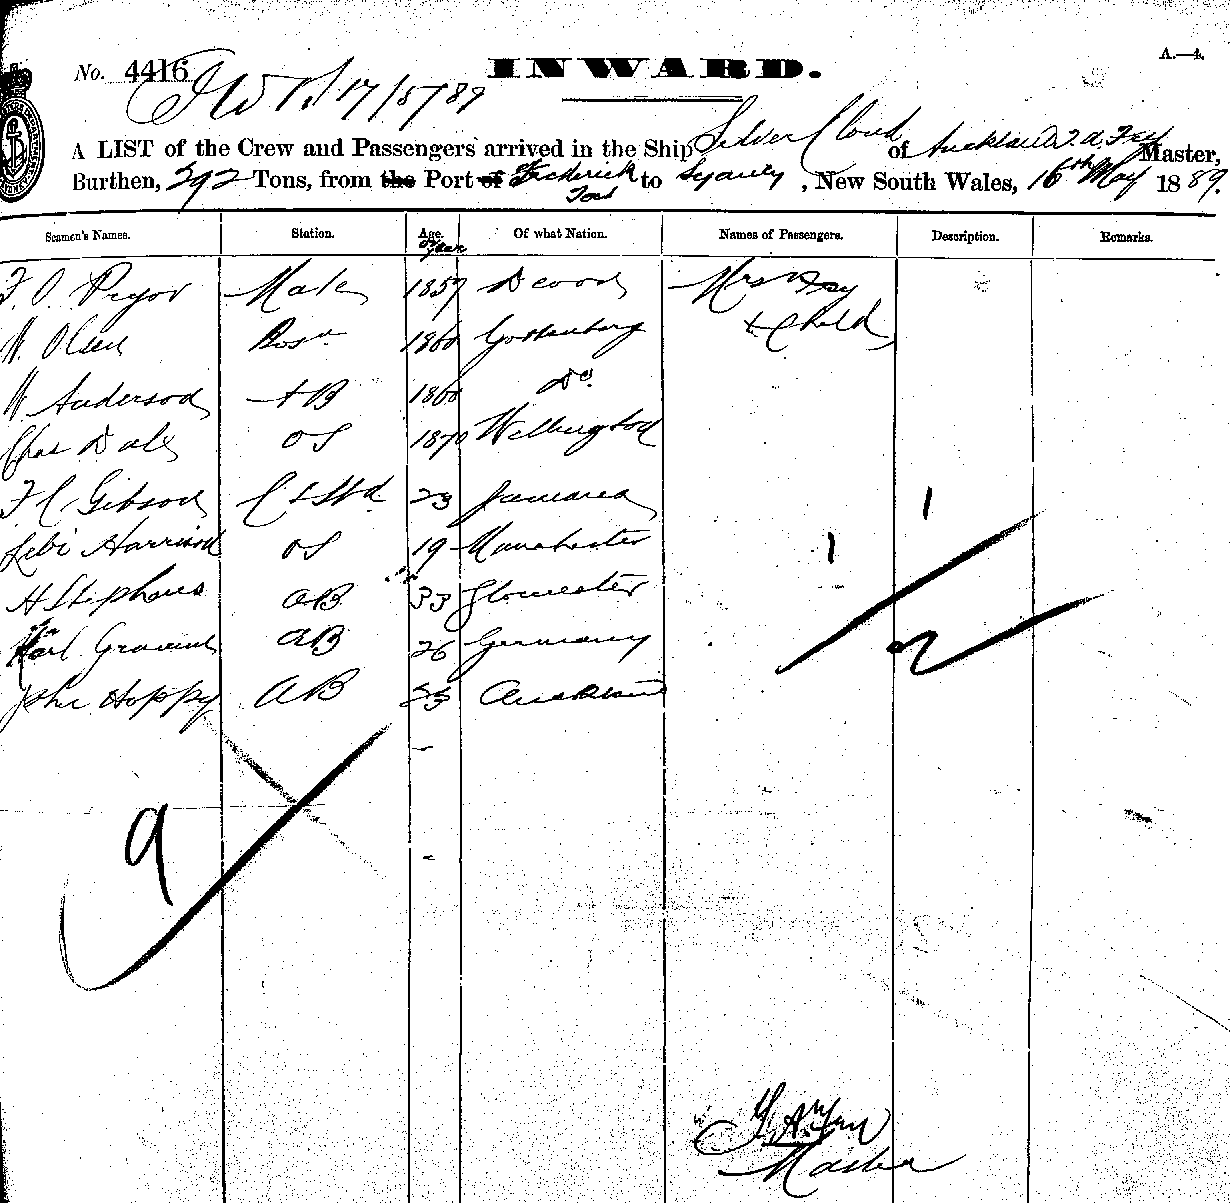 A.—4.
No. 4416 INWARD.
17/5/89
A LIST of the Crew and Passengers arrived in the Ship Silver Cloud of Auckland Master,
Burthen, 292 Tons, from the Port of Frederick to Sydney, New South Wales, 16th May 1889.
Seamen's Names. Station. Age. Of what Nation. Names of Passengers. Description. Remarks.
or year
F. O. Pryor Mate 1857 Devon Mrs
W. Olsen Bosn 1860 Gottenburg & Child
W Anderson AB 1860 Do
Chas Dale OS 1870 Wellington
F C Gibson C & Std 23 Jamaica 1
Levi Harrison OS 19 Manchester 1
H Stephens AB 33 Gloucester
Karl AB 26 Germany 2
John Hoppy AB 23 Auckland
9
Master